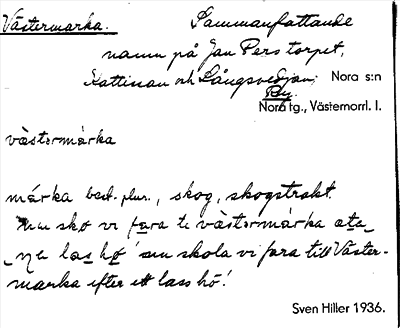 Västermarka. Sammanfattande
namn på Jan Pers torpet,
Kattinan och Långsved Nora s:n
Nora tg., Västernorrl. l.
västərmárka
márka best. plur., skog, skogstrakt.
skọ vi fara te västərmárka ẹta
las hø' 'nu skola vi fara till Väster-
marka efter ett lass hö'.
Sven Hiller 1936.